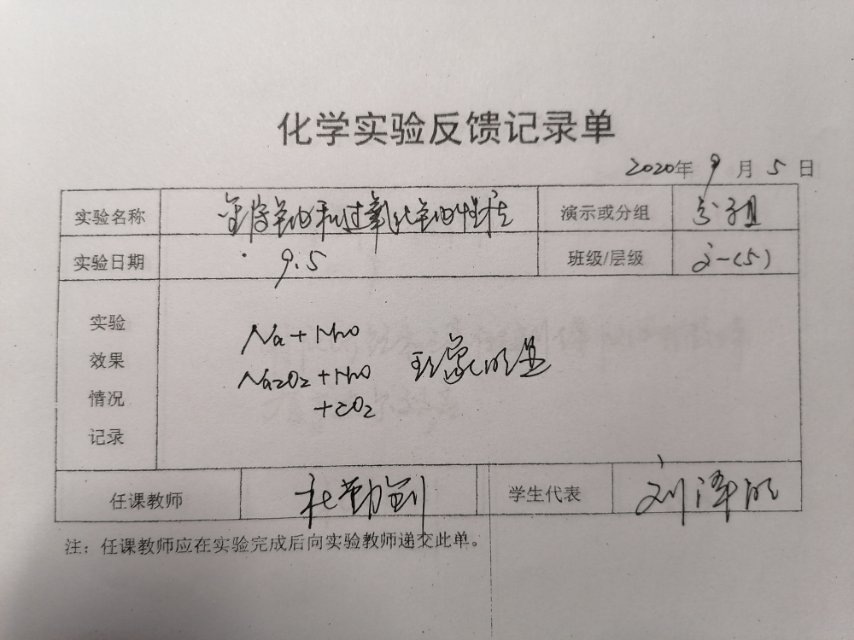 化学实验反馈记录单
2020年 9 月 5 日
实验名称 金属钠和过氧化钠的性质 演示或分组 分组
实验日期 9.5 班级/层级 2-(5)
实验
效果
情况
记录
Na + H2O
Na2O2 + H2O 现象明显
+CO2
任课教师 杜勤 学生代表 刘泽明
注：任课教师应在实验完成后向实验教师递交此单。